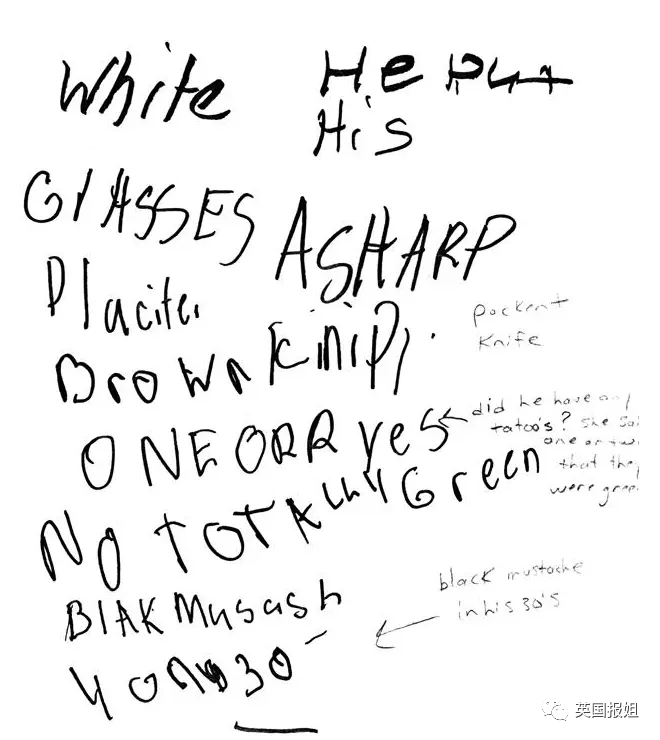 White He put
His
GlASSES A SHARP
Placite.
Brown kinip,. pockent
knife
ONE ORR yes did he have any
tatoo's? she sai
one or tw
that the
NO TOTAlly Green were grap
BlAK Musash black mustache
in his 30's
30
英国报姐